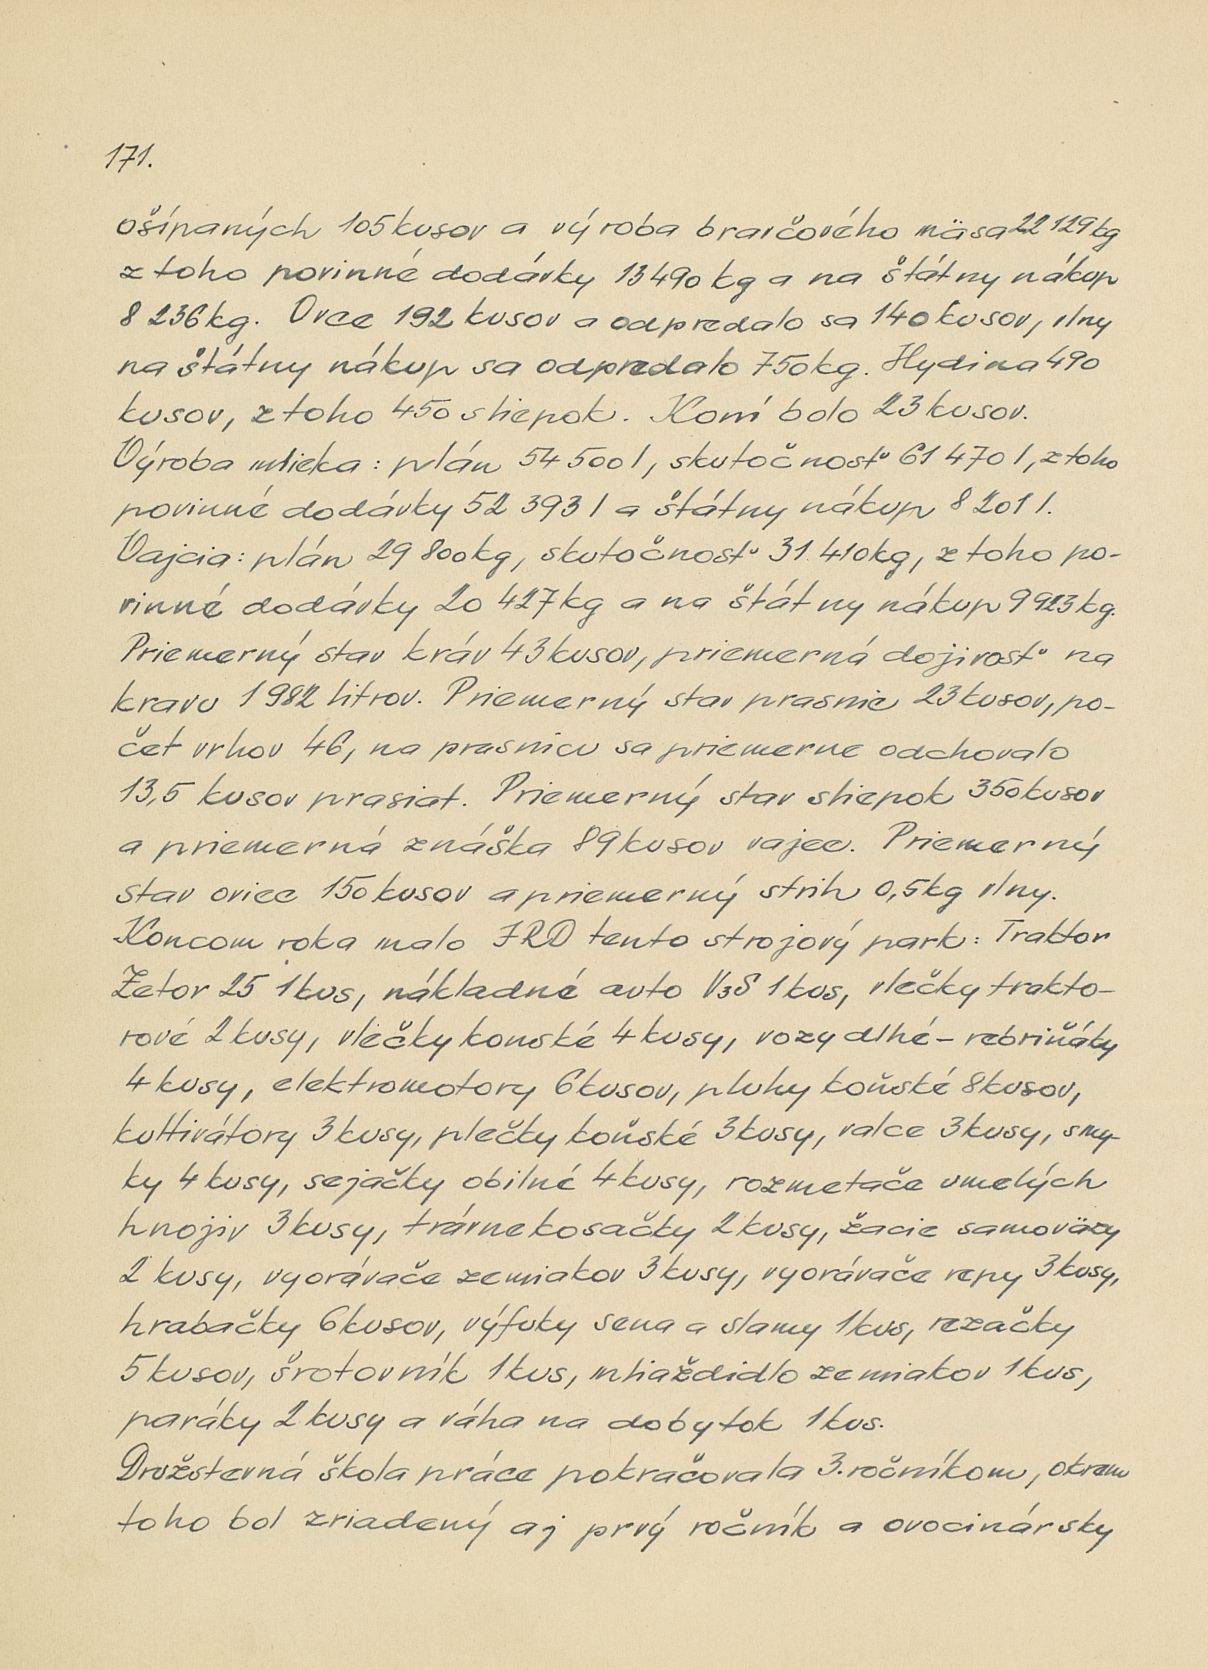 171.
ošípaných 105 kusov a výroba bravčového mäsa 22 129 kg
z toho povinné dodávky 13 490 kg a na štátny nákup
8 236 kg. Ovce 192 kusov a odpredalo sa 140 kusov, vlny
na štátny nákup sa odpredalo 750 kg. Hydina 490
kusov, z toho 450 sliepok. Koní bolo 23 kusov.
Výroba mlieka: plán 54 500 l, skutočnosť 61 470 l, z toho
povinné dodávky 52 393 l a štátny nákup 8 201 l.
Vajcia: plán 29 800 kg, skutočnosť 31 410 kg, z toho po-
vinné dodávky 20 427 kg a na štátny nákup 9 923 kg.
Priemerný stav kráv 43 kusov, priemerná dojivosť na
kravu 1 982 litrov. Priemerný stav prasníc 23 kusov, po-
čet vrhov 46, na prasnicu sa priemerne odchovalo
13,5 kusov prasiat. Priemerný stav sliepok 350 kusov
a priemerná znáška 89 kusov vajec. Priemerný
stav oviec 150 kusov a priemerný strih 0,5 kg vlny.
Koncom roka malo JRD tento strojový park: Traktor
Zetor 25 1 kus, nákladné auto V3S 1 kus, vlečky trakto-
rové 2 kusy, vlečky konské 4 kusy, vozy dlhé - rebriňáky
4 kusy, elektromotory 6 kusov, pluhy koňské 8 kusov,
kultivátory 3 kusy, plečky koňské 3 kusy, valce 3 kusy, smy-
ky 4 kusy, sejačky obilné 4 kusy, rozmetače umelých
hnojív 3 kusy, trávnekosačky 2 kusy, žacie samoväzy
2 kusy, vyorávače zemiakov 3 kusy, vyorávače repy 3 kusy,
hrabačky 6 kusov, výfuky sena a slamy 1 kus, rezačky
5 kusov, šrotovník 1 kus, mliaždidlo zemiakov 1 kus,
paráky 2 kusy a váha na dobytok 1 kus.
Družstevná škola práce pokračovala 3. ročníkom, okrem
toho bol zriadený aj prvý ročník a ovocinársky